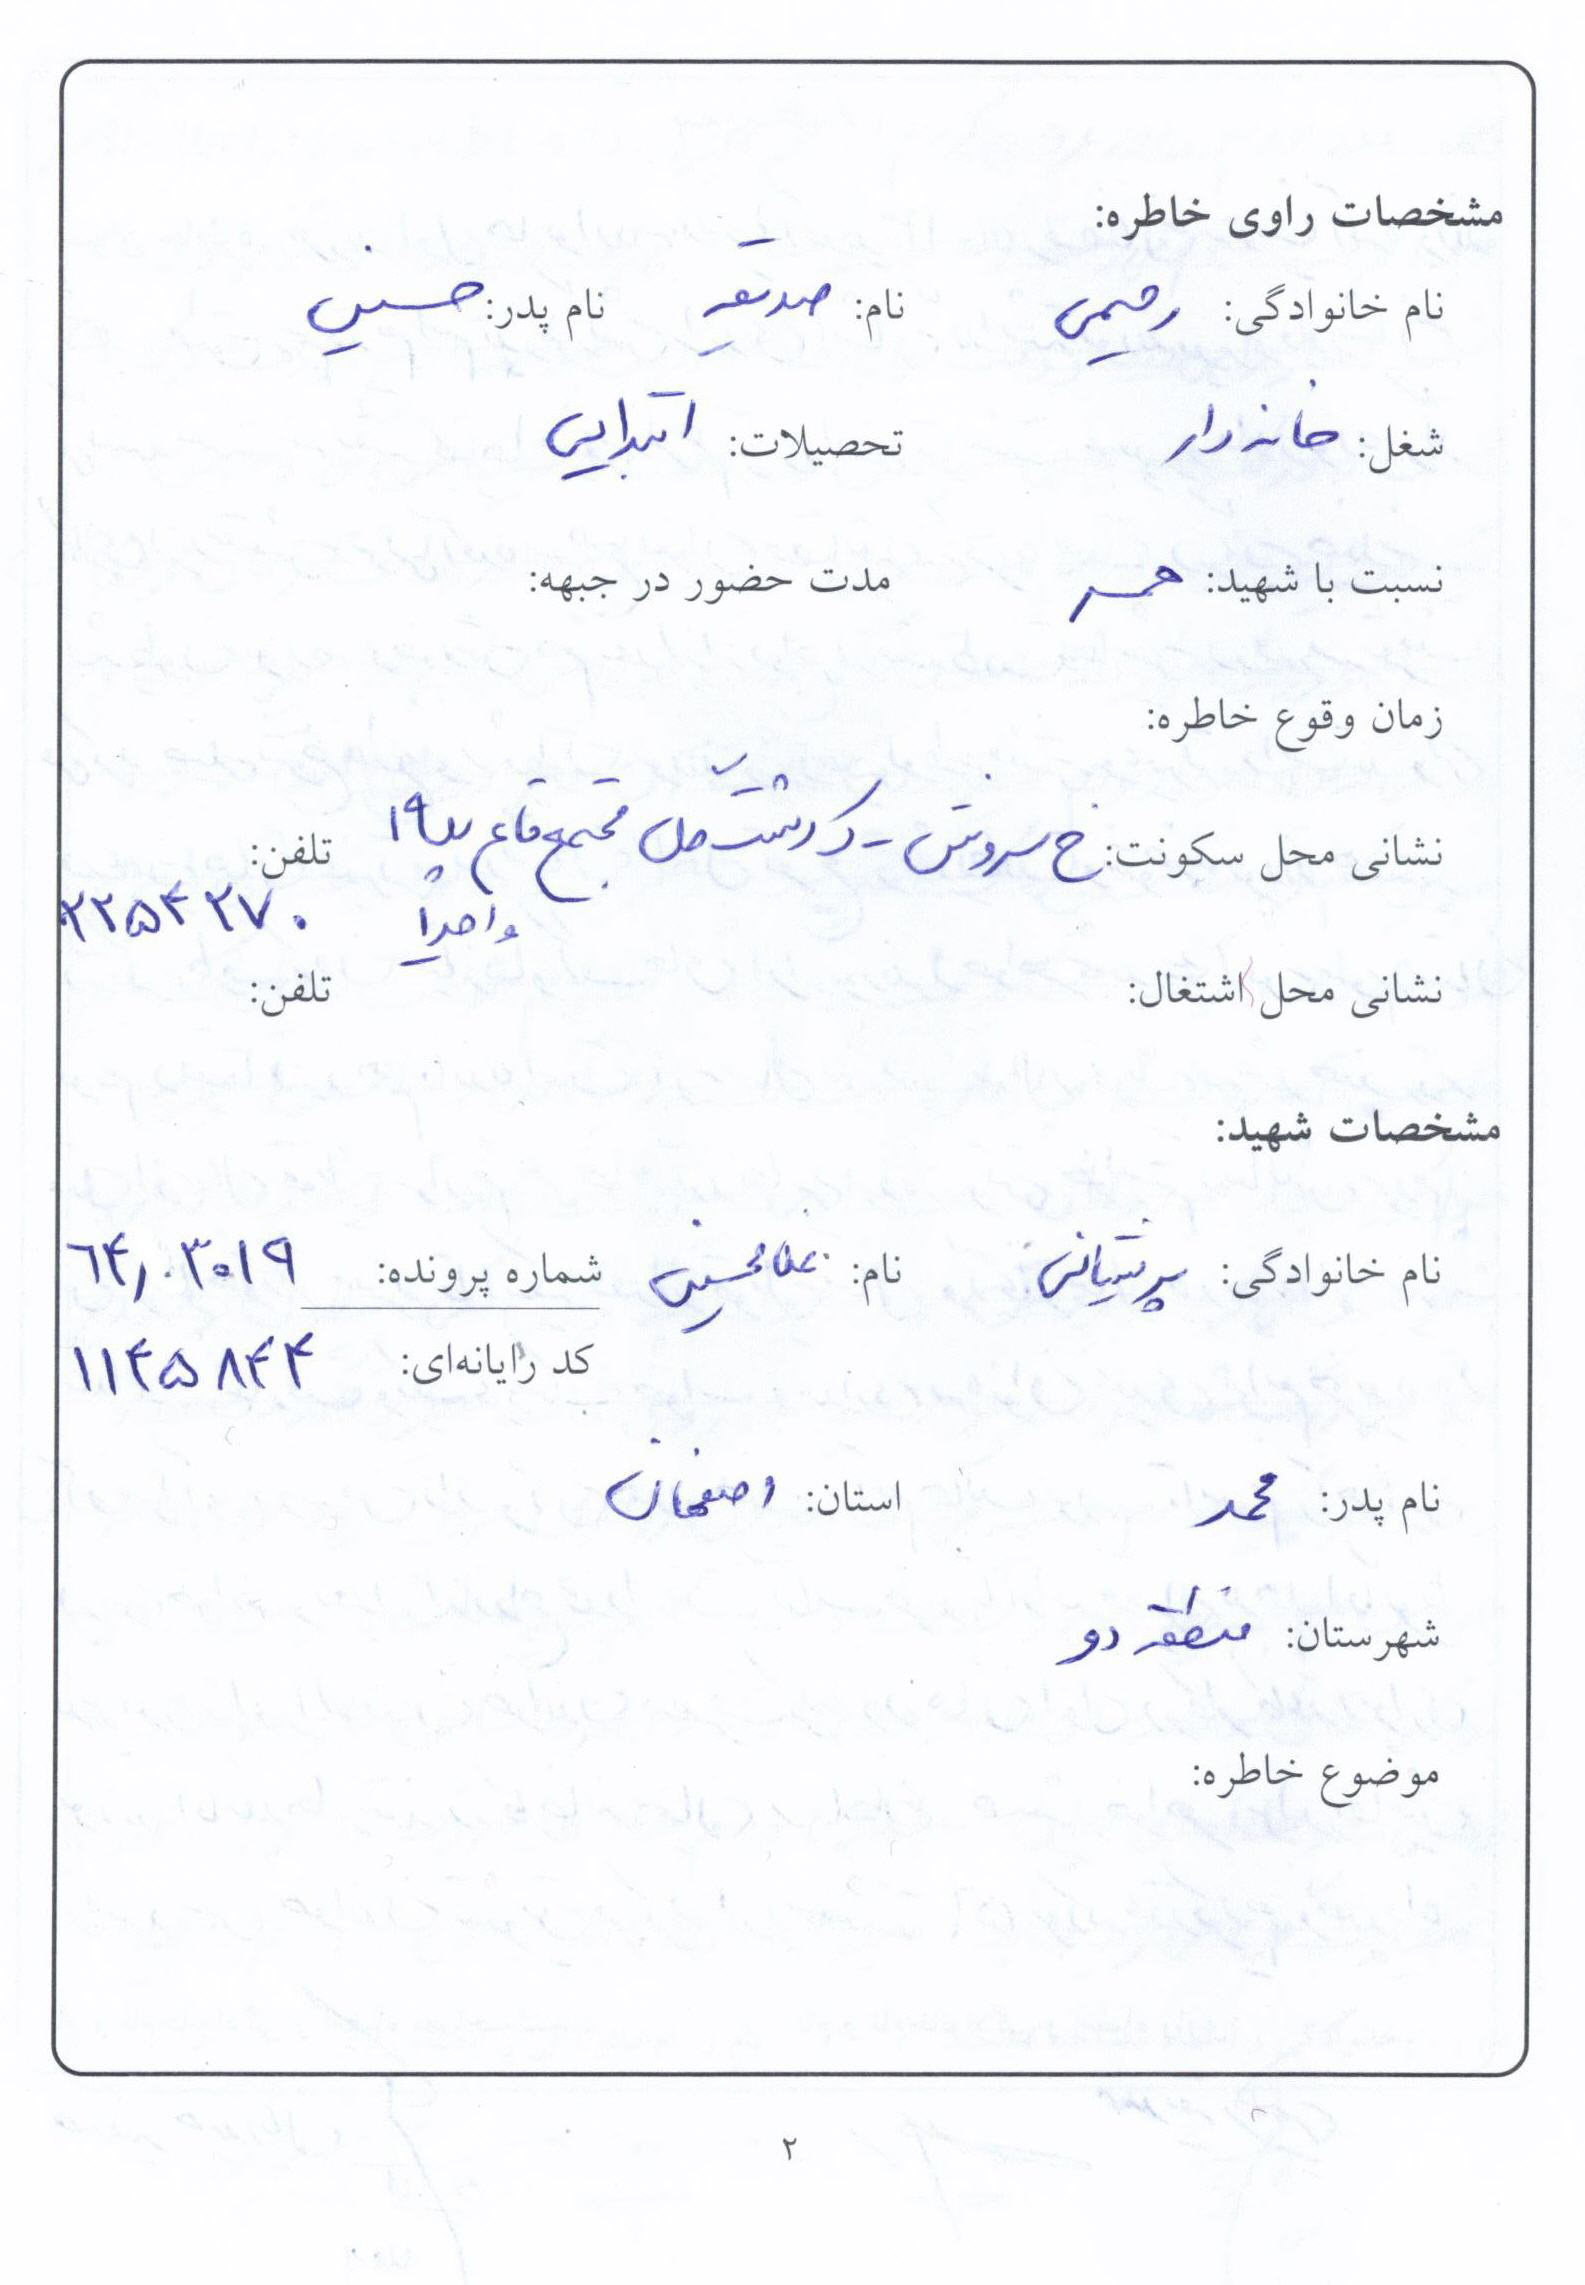 مشخصات راوی خاطره:
نام خانوادگی: رحیمی نام: صدیقه نام پدر: حسین
شغل: خانه دار تحصیلات: ابتدایی
نسبت با شهید: همسر مدت حضور در جبهه:
زمان وقوع خاطره:
نشانی محل سکونت: خ سروش - ک مجتمع قائم پلاک ۱۹ تلفن:
واحد ۱ ۲۲۵۴۲۷۰
نشانی محل اشتغال: تلفن:
مشخصات شهید:
نام خانوادگی: نام: غلامحسین شماره پرونده: ۶۴۰۳۰۱۹
کد رایانه‌ای: ۱۱۴۵۸۴۴
نام پدر: محمد استان: اصفهان
شهرستان: منطقه دو
موضوع خاطره:
۲